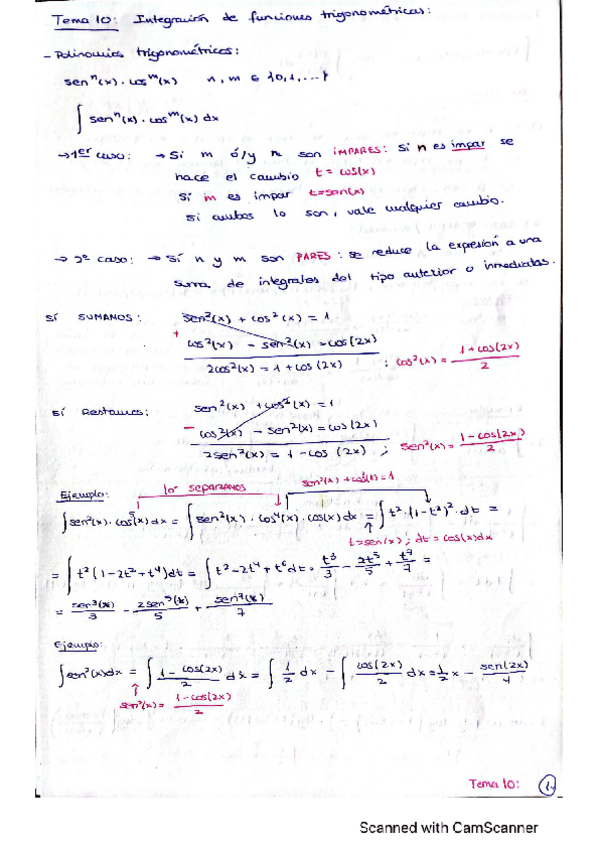 Tema 10: Integración de funciones trigonométricas:
- Polinomios trigonométricos:
senⁿ(x) · cosᵐ(x) n, m ∈ {0,1,...}
∫ senⁿ(x) · cosᵐ(x) dx
→ 1er caso: → Si m ó/y n son IMPARES: si n es impar se
hace el cambio t = cos(x)
si m es impar t=sen(x)
si ambos lo son, vale cualquier cambio.
→ 2º caso: → Si n y m son PARES: se reduce la expresión a una
suma de integrales del tipo anterior o inmediatas.
Si SUMAMOS: sen²(x) + cos²(x) = 1
+ cos²(x) - sen²(x) = cos(2x)
2cos²(x) = 1 + cos(2x) ; cos²(x) = (1 + cos(2x))/2
Si Restamos: sen²(x) + cos²(x) = 1
- cos²(x) - sen²(x) = cos(2x)
2sen²(x) = 1 - cos(2x) ; sen²(x) = (1 - cos(2x))/2
Ejemplo: lo separamos sen²(x) + cos²(x) = 1
∫sen²(x) · cos⁵(x) dx = ∫sen²(x) · cos⁴(x) · cos(x) dx = ∫t² · (1-t²)² · dt =
t=sen(x) ; dt = cos(x)dx
= ∫t²(1-2t²+t⁴)dt = ∫t²-2t⁴+t⁶dt = t³/3 - 2t⁵/5 + t⁷/7 =
= sen³(x)/3 - 2sen⁵(x)/5 + sen⁷(x)/7
Ejemplo:
∫sen²(x)dx = ∫(1 - cos(2x))/2 dx = ∫1/2 dx - ∫cos(2x)/2 dx = 1/2 x - sen(2x)/4
sen²(x) = (1 - cos(2x))/2
Tema 10: 1
Scanned with CamScanner